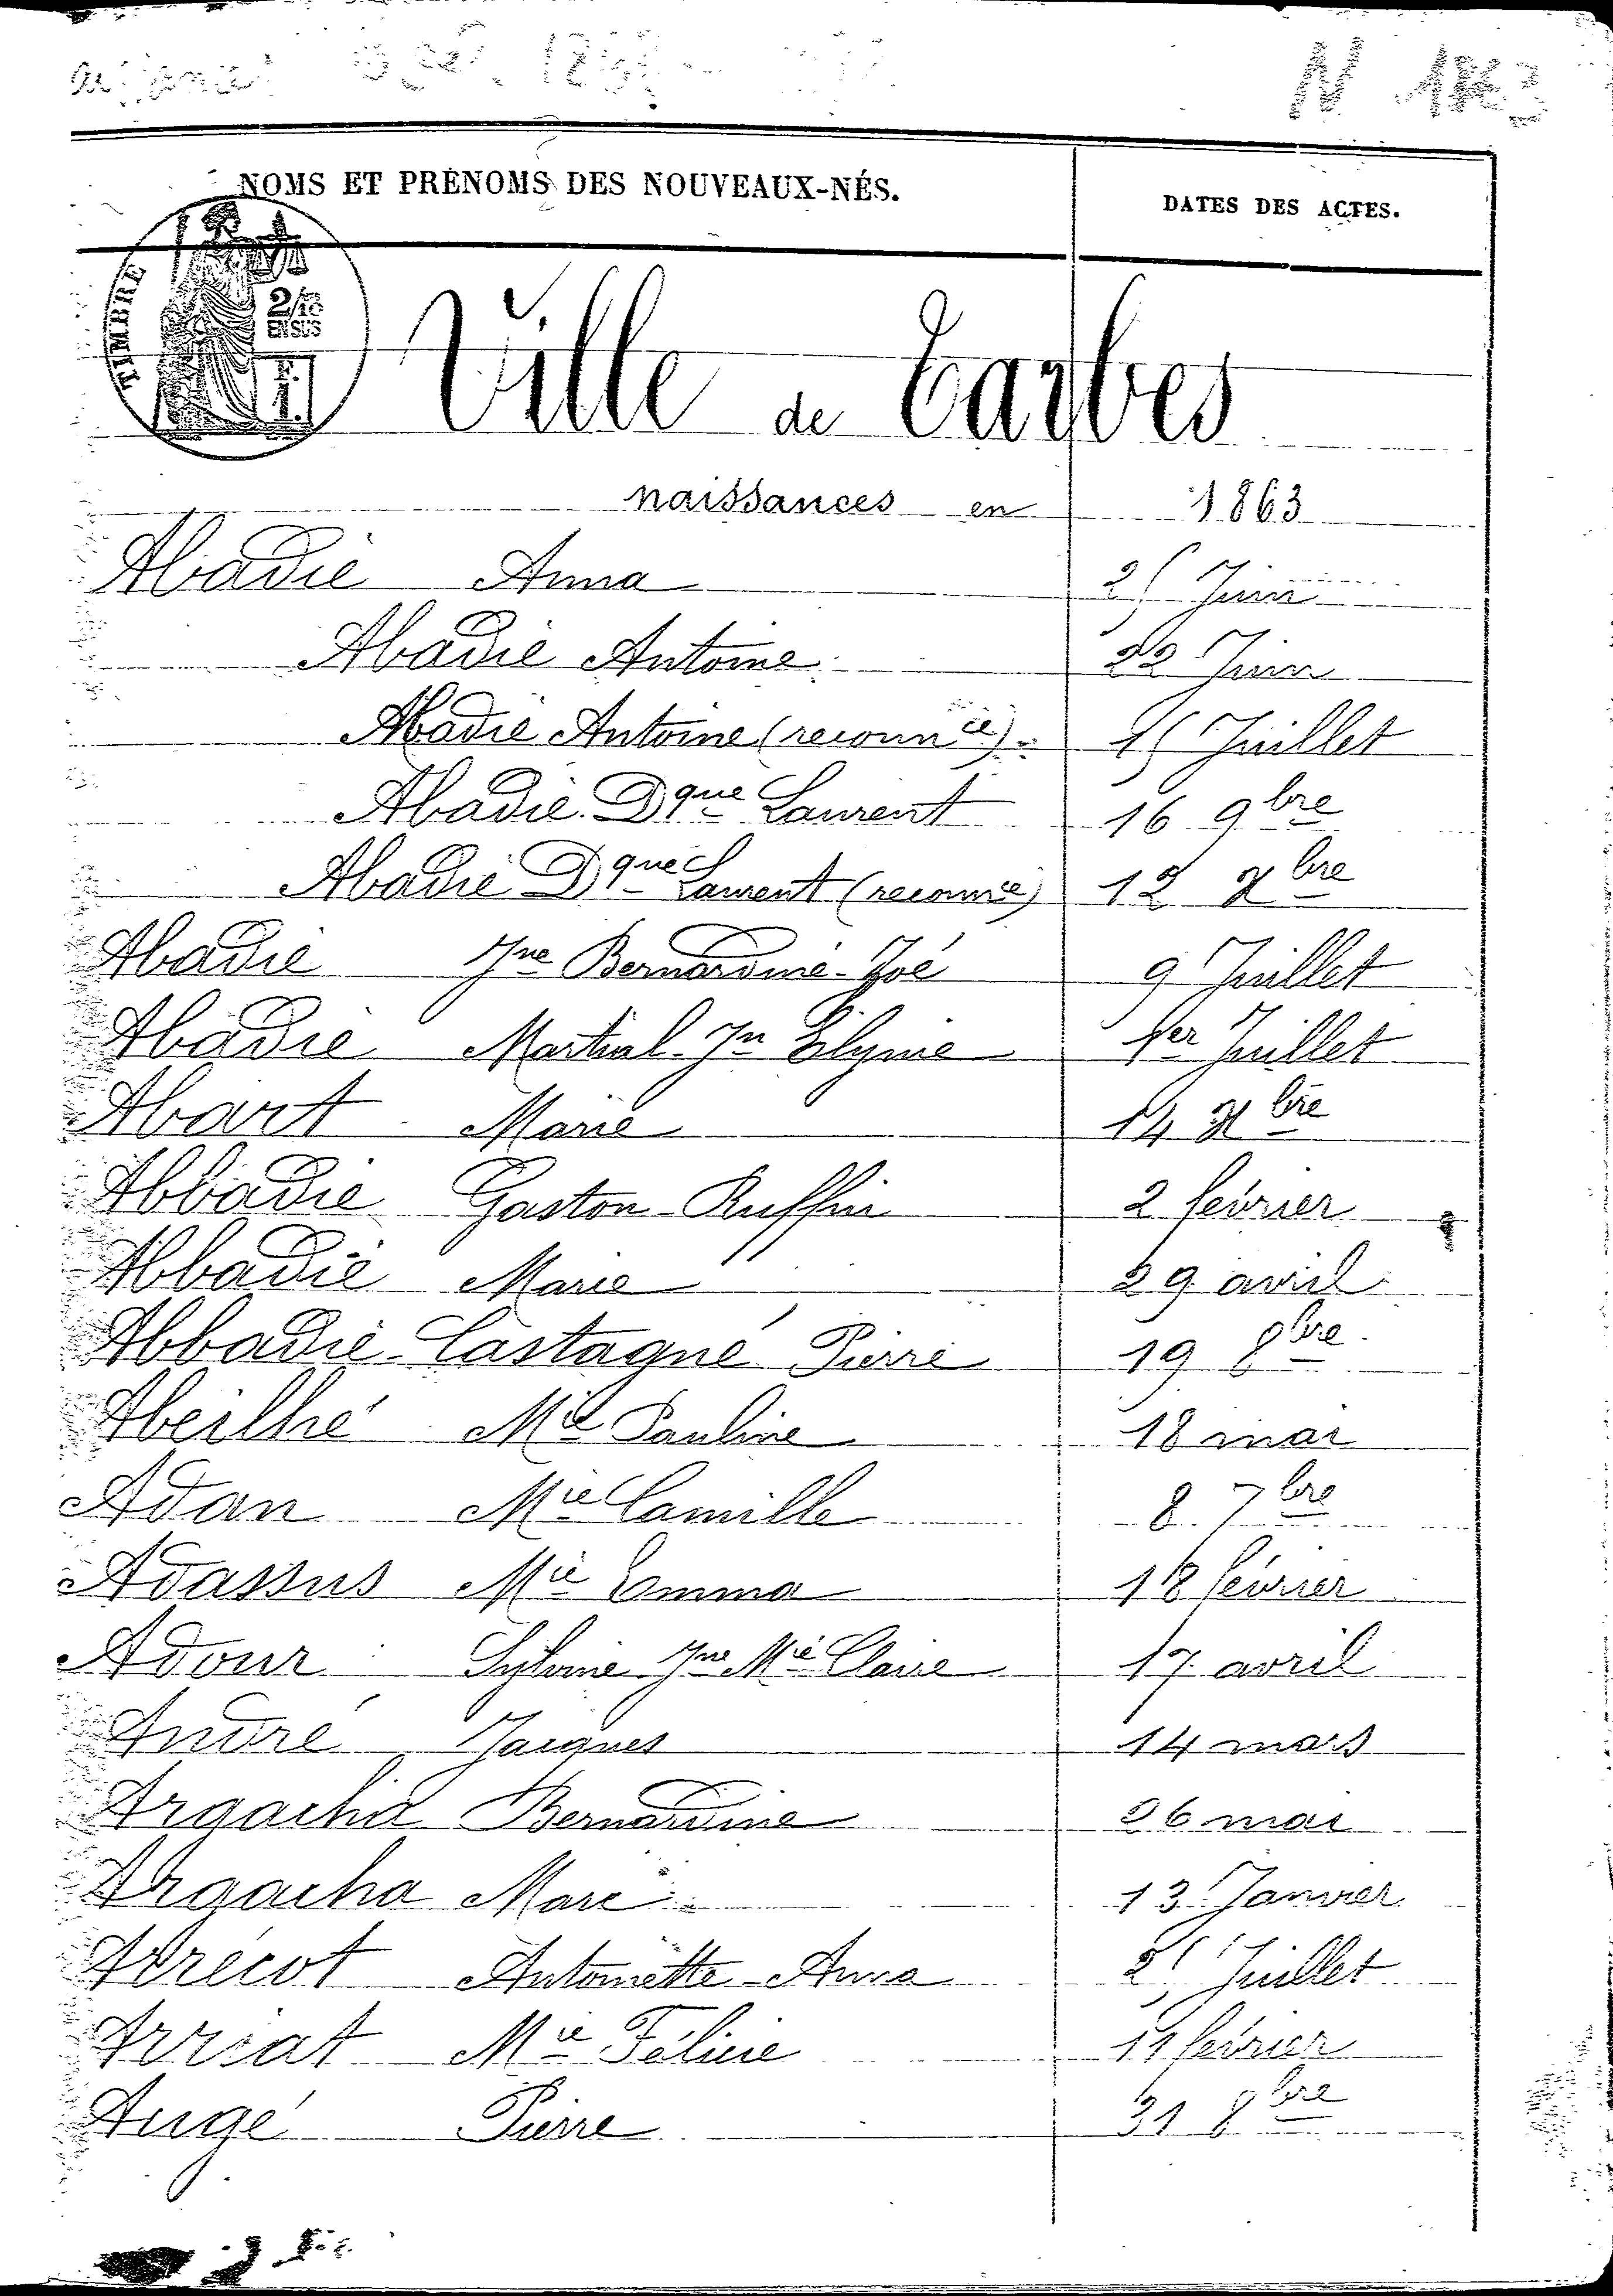 N 1863
NOMS ET PRÉNOMS DES NOUVEAUX-NÉS. DATES DES ACTES.
TIMBRE
2/10
EN SUS
Ville de Tarbes
naissances en 1863
Abadie Anna 25 Juin
Abadie Antoine 22 Juin
Abadie Antoine (reconnce) 15 Juillet
Abadie Dque Laurent 16 9bre
Abadie Dque Laurent (reconnce) 12 Xbre
Abadie Jne Bernardine Zoé 9 Juillet
Abadie Martial Jn 1er Juillet
Abart Marie 14 Xbre
Abbadie Gaston Ruffin 2 février
Abbadie Marie 29 avril
Abbadie Castagné Pierre 19 8bre
Abeilhé Mie Pauline 18 mai
Adan Mie Camille 8 7bre
Adassus Mie Emma 18 février
Adour Sylvine Jne Mie Claire 17 avril
André Jacques 14 mars
Argacha Bernardine 26 mai
Argacha Marie 13 Janvier
Arrécot Antoinette Anna 25 Juillet
Arriat Mie Félicie 11 février
Augé Pierre 31 8bre